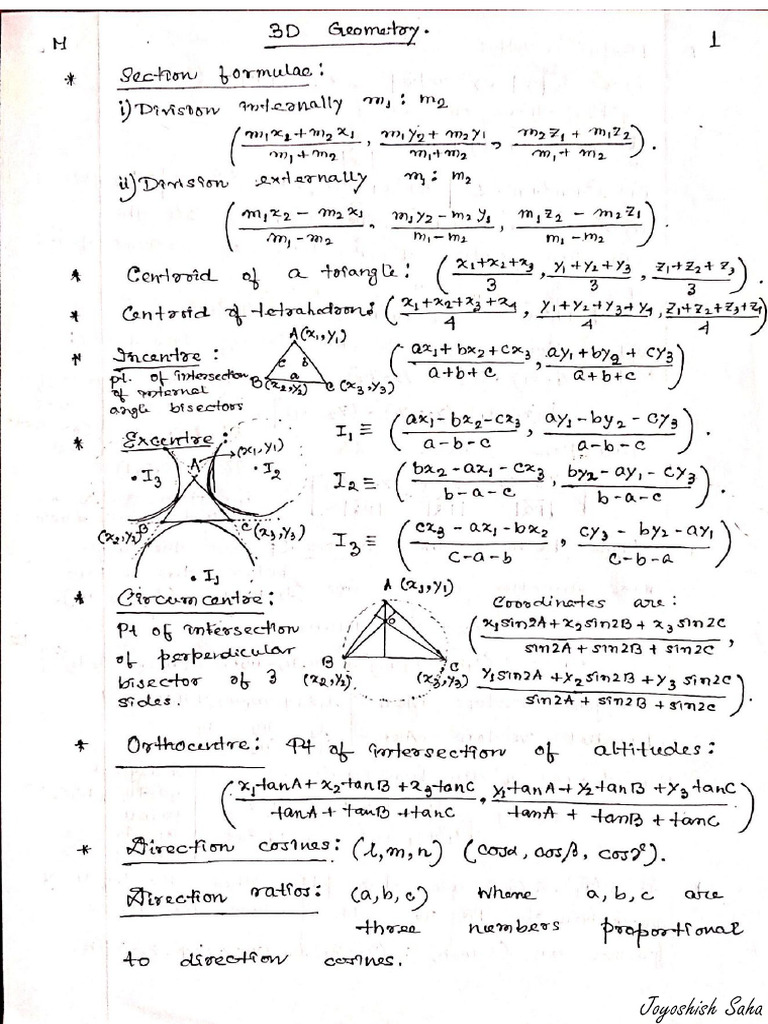 M 3D Geometry. 1
* Section formulae:
i) Division internally m₁ : m₂
((m₁x₂+m₂x₁)/(m₁+m₂), (m₁y₂+m₂y₁)/(m₁+m₂), (m₂z₁+m₁z₂)/(m₁+m₂)).
ii) Division externally m₁ : m₂
((m₁x₂-m₂x₁)/(m₁-m₂), (m₁y₂-m₂y₁)/(m₁-m₂), (m₁z₂-m₂z₁)/(m₁-m₂)).
* Centroid of a triangle: ((x₁+x₂+x₃)/3, (y₁+y₂+y₃)/3, (z₁+z₂+z₃)/3).
* Centroid of tetrahedron: ((x₁+x₂+x₃+x₄)/4, (y₁+y₂+y₃+y₄)/4, (z₁+z₂+z₃+z₄)/4)
* Incentre:
pt. of intersection
of internal
angle bisectors
A(x₁,y₁)
c b
a
B(x₂,y₂) C(x₃,y₃)
((ax₁+bx₂+cx₃)/(a+b+c), (ay₁+by₂+cy₃)/(a+b+c))
* Excentre:
A (x₁,y₁)
I₃ I₂
(x₂,y₂) B C (x₃,y₃)
I₁
I₁ ≡ ((ax₁-bx₂-cx₃)/(a-b-c), (ay₁-by₂-cy₃)/(a-b-c)).
I₂ ≡ ((bx₂-ax₁-cx₃)/(b-a-c), (by₂-ay₁-cy₃)/(b-a-c)).
I₃ ≡ ((cx₃-ax₁-bx₂)/(c-a-b), (cy₃-by₂-ay₁)/(c-b-a))
* Circumcentre:
Pt of intersection
of perpendicular
bisector of 3
sides.
A (x₁,y₁)
O
B C
(x₂,y₂) (x₃,y₃)
Coordinates are:
((x₁sin2A+x₂sin2B+x₃sin2C)/(sin2A+sin2B+sin2C),
(y₁sin2A+y₂sin2B+y₃sin2C)/(sin2A+sin2B+sin2C)).
* Orthocentre: Pt of intersection of altitudes:
((x₁tanA+x₂tanB+x₃tanC)/(tanA+tanB+tanC), (y₁tanA+y₂tanB+y₃tanC)/(tanA+tanB+tanC))
* Direction cosines: (l,m,n) (cosα, cosβ, cosγ).
Direction ratios: (a,b,c) where a,b,c are
three numbers proportional
to direction cosines.
Joyoshish Saha